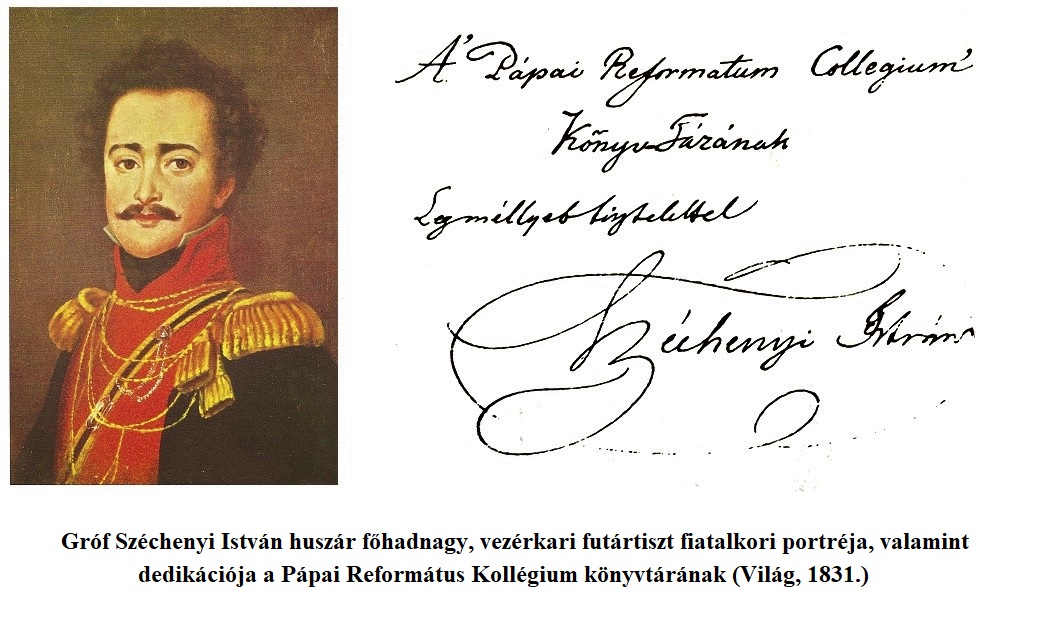 A' Pápai Reformatum Collegium'
Könyv-Tárának
Legméllyeb tisztelettel
Széchenyi István
Gróf Széchenyi István huszár főhadnagy, vezérkari futártiszt fiatalkori portréja, valamint
dedikációja a Pápai Református Kollégium könyvtárának (Világ, 1831.)